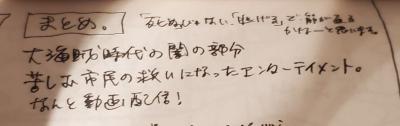 まとめ。
「死ぬんじゃない、「逃げる」で 筋が通る
かなーと思います。
大海賊時代の闇の部分
苦しむ市民の救いになったエンターテイメント。
なんと動画配信！